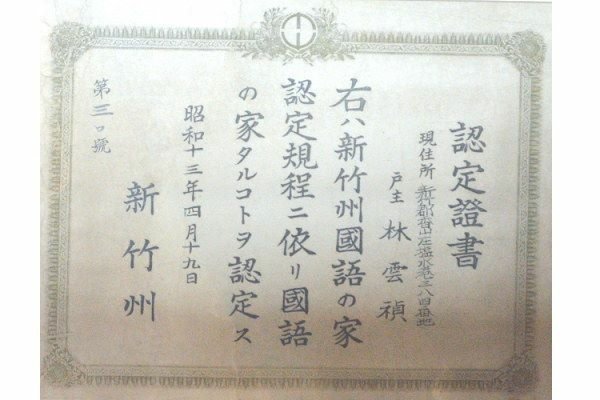 認定證書
現住所 新竹郡香山庄塩水港三八四番地
戸主 林雲禎
右ハ新竹州國語の家
認定規程ニ依リ國語
の家タルコトヲ認定ス
昭和十三年四月十九日
新竹州
第三口號